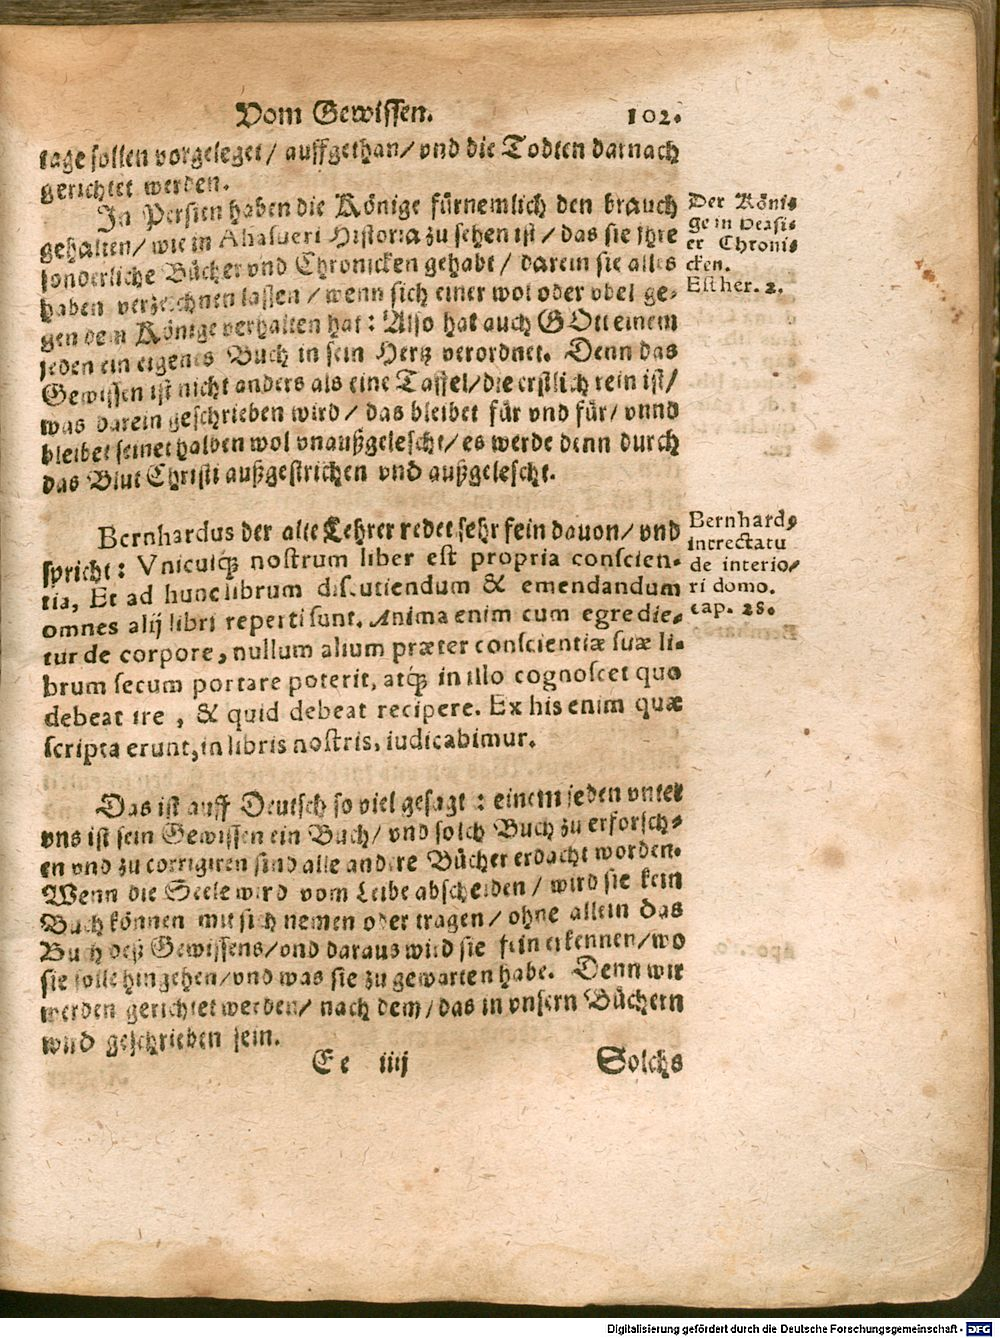 Vom Gewissen. 102.
tage sollen vorgeleget / auffgethan / vnd die Todten darnach
gerichtet werden.
In Persien haben die Könige fürnemlich den brauch
gehalten / wie in Ahasueri Historia zu sehen ist / das sie jhre
sonderliche Bücher vnd Chronicken gehabt / darein sie alles
haben verzeichnen lassen / wenn sich einer wol oder vbel ge-
gen dem Könige verhalten hat: Also hat auch GOtt einem
jeden ein eigenes Buch in sein Hertz verordnet. Denn das
Gewissen ist nicht anders als eine Taffel / die erstlich rein ist /
was darein geschrieben wird / das bleibet für vnd für / vnnd
bleibet seinet halben wol vnaußgelescht / es werde denn durch
das Blut Christi außgestrichen vnd außgelescht.
Der Köni-
ge in Persi-
er Chroni-
cken.
Esther. 2.
Bernhardus der alte Lehrer redet sehr fein dauon / vnd
spricht: Vnicuiq; nostrum liber est propria conscien-
tia, Et ad hunc librum discutiendum & emendandum
omnes alij libri reperti sunt. Anima enim cum egredie-
tur de corpore, nullum alium præter conscientiæ suæ li-
brum secum portare poterit, atq; in illo cognoscet quo
debeat ire , & quid debeat recipere. Ex his enim quæ
scripta erunt, in libris nostris, iudicabimur.
Bernhard9
in tractatu
de interio-
ri domo.
cap. 28.
Das ist auff Deutsch so viel gesagt : einem jeden vnter
vns ist sein Gewissen ein Buch / vnd solch Buch zu erforsch-
en vnd zu corrigiren sind alle andere Bücher erdacht worden.
Wenn die Seele wird vom Leibe abscheiden / wird sie kein
Buch können mit sich nemen oder tragen / ohne allein das
Buch deß Gewissens / vnd daraus wird sie fein erkennen / wo
sie solle hingehen / vnd was sie zu gewarten habe. Denn wir
werden gerichtet werden / nach dem / das in vnsern Büchern
wird geschrieben sein.
Ee iiij Solchs
Digitalisierung gefördert durch die Deutsche Forschungsgemeinschaft - DFG